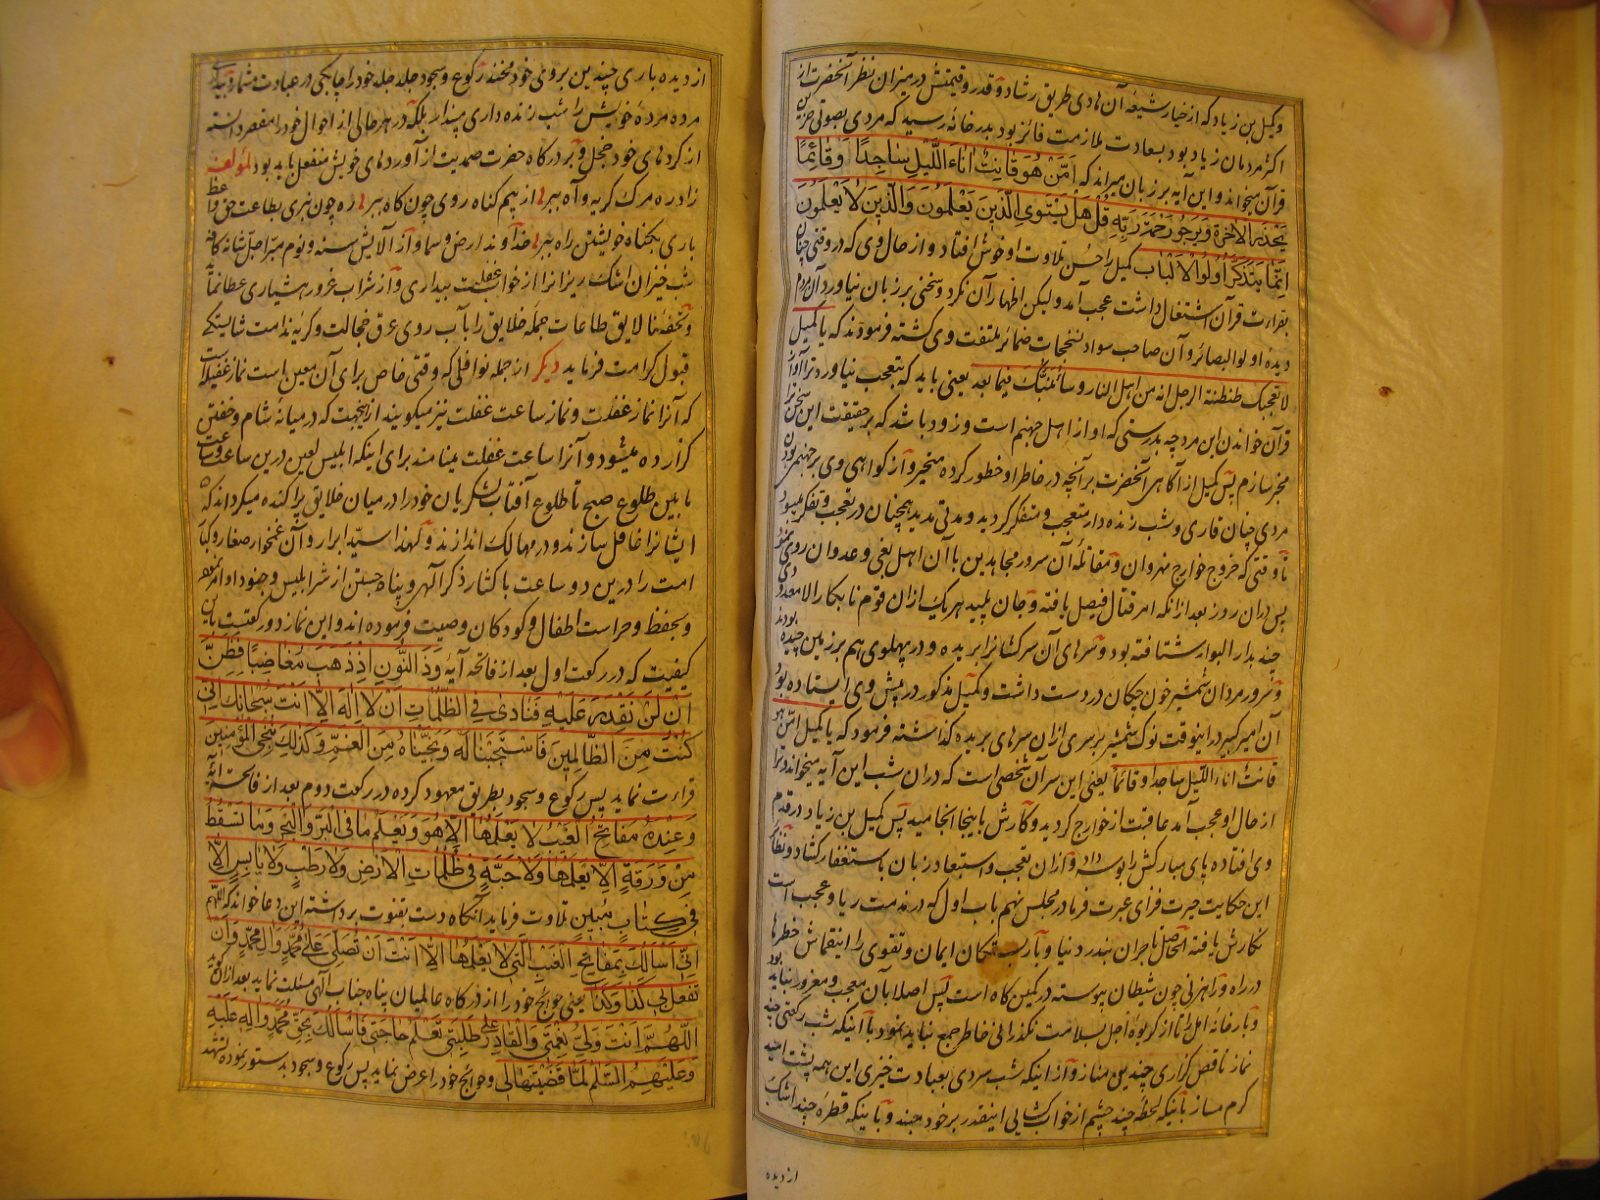 وکمیل بن زیاد که از خیار شیعهٔ آن هادی طریق رشاد و قدر و قیمتش در میزان نظر آنحضرت از
اکثر مردمان زیاد بود بسعادت ملازمت فائز بود بدر خانهٔ رسید که مردی بصوتی حزین
قرآن میخواند و این آیه بر زبان میراند که اَمَّنْ هُوَ قانِتٌ اناءَ اللَّیْلِ ساجِدًا وَقائِمًا
یَحْذَرُ الاخِرَةَ وَیَرْجُو رَحْمَةَ رَبِّهِ قُلْ هَلْ یَسْتَوِی الَّذینَ یَعْلَمُونَ وَالَّذینَ لایَعْلَمُونَ
اِنَّما یَتَذَکَّرُ اُولُوا الاَلْبابِ کمیل را حسن تلاوت او خوش افتاد و از حال وی که در وقتی چنان
بقراءت قرآن اشتغال داشت عجب آمد ولیکن اظهار آن نکرد و سخنی بر زبان نیاورد آن مردم
دیدهٔ اولوا البصائر و آن صاحب سواد ضمائر ملتفت وی کشته فرمودند که یا کمیل
لا تعجبک طنطنة الرجل انه من اهل النار و سانبئک فیما بعد یعنی باید که بتعجب نیاورد ترا آواز
قرآن خواندن این مرد چه بدرستی که او از اهل جهنم است و زود باشد که بر حقیقت این سخن ترا
مخبر سازم پس کمیل از آگاهی آنحضرت بر آنچه در خاطر او خطور کرده متحیر و از کواهی وی بر جهنمی بودن
مردی چنان قاری و شب زنده دار متعجب و متفکر کردید و مدتی مدید همچنان در تعجب و تفکر میبود
تا وقتی که خروج خوارج نهروان و مقاتلهٔ آن سرور مجاهدین با آن اهل بغی و عدوان روی نمود
پس در آن روز بعد از آنکه امر قتال فیصل یافته و جان پلید هر یک از آن قوم نابکار الا معدودی
چند بدار البوار شتافته بود و سرهای آن سرکشانرا بریده و در پهلوی هم بر زمین چیده بودند
و سرور مردان شمشیر خون چکان در دست داشت و کمیل مذکور در پیش وی ایستاده بود
آن امیر کبیر در اینوقت نوک شمشیر بر سری از آن سرهای بریده کذاشته فرمود که یا کمیل امّن هو
قانت اناء اللّیل ساجدا و قائما یعنی این سر آن شخصی است که در آن شب این آیه میخواند و ترا
از حال او عجب آمد عاقبت از خوارج کردید و کارش باینجا انجامید پس کمیل بن زیاد در قدم
وی افتاده پای مبارکش را بوسه داد و از آن تعجب و استبعاد زبان باستغفار کشاد و نظائر
این حکایت حیرت فزای عبرت فرما در مجلس نهم باب اول که در مذمت ریا و عجب است
نکارش یافته الحاصل تاجران بندر دنیا و بار ایمان و تقوی را خطرها
در راه و راهزنی چون شیطان پیوسته در کمین کاه است پس اصلا بآن معجب و مغرور نباید بود
و تا رخانهٔ امل را تا از کریوهٔ اجل بسلامت نکذرانی خاطر جمع نباید نمود با اینکه شب رکعتی چند
نماز ناقص کزاری چندین مناز و از اینکه شب سردی بعبادت خیزی این همه پشت امید
کرم مساز باینکه لحظهٔ چند چشم از خواب کشایی اینقدر بر خود مبند و باینکه قطرهٔ چند اشک
از دیده
از دیده باری چندین بر روی خود مخند رکوع و سجود جله جله خود را چابکی در عبادت مشمار و بیداری
مرده مردهٔ خویش را شب زنده داری مپندار بلکه در هر حالی از احوال خود را مقصر دانسته
از کردهای خود خجل و بر درکاه حضرت صمدیت از آوردهای خویش منفعل باید بود لمؤلفه
زاد ره مرک کریه و آه ببر از بیم کناه روی چون کاه ببر ره چون نبری بطاعت حق واعظ
باری بکناه خویشتن راه ببر خداوند ارض و سما و آنه الایش سنه و نوم مبرا جل شانه کافهٔ
شب خیزان اشک ریزانرا از خواب غفلت بیداری و از شراب غرور هشیاری عطا نماید
و تحفهٔ نالایق طاعات جملهٔ خلایق را بآب روی عرق خجالت و کریهٔ ندامت شایستکی
قبول کرامت فرماید دیکر از جمله نوافلی که وقتی خاص برای آن معین است نماز غفیله است
که آنرا نماز غفلت و نماز ساعت غفلت نیز میکویند از اینجهت که در میانهٔ شام و خفتن
کزارده میشود و آنرا ساعت غفلت مینامند برای اینکه ابلیس لعین درین ساعت و ساعت
ما بین طلوع صبح تا طلوع آفتاب لشکریان خود را در میان خلایق پراکنده میکرداند که
ایشانرا غافل سازند و در مهالک اندازند و لهذا سیّد ابرار و آن غمخوار صغار و کبار
امت را درین دو ساعت باکثار ذکر آلهی و پناه جستن از شر ابلیس و جنود او امر نموده
و بحفظ و حراست اطفال و کودکان وصیت فرموده اند و این نماز دو رکعتست باین
کیفیت که در رکعت اول بعد از فاتحه آیهٔ وَذَا النُّونِ اِذْ ذَهَبَ مُغاضِبًا فَظَنَّ
اَنْ لَنْ نَقْدِرَ عَلَیْهِ فَنادی فِی الظُّلُماتِ اَنْ لا اِلهَ اِلاّ اَنْتَ سُبْحانَکَ اِنّی
کُنْتُ مِنَ الظّالِمینَ فَاسْتَجَبْنا لَهُ وَنَجَّیْناهُ مِنَ الْغَمِّ وَکَذلِکَ نُنْجِی الْمُؤْمِنینَ
قراءت نماید پس رکوع و سجود بطریق معهود کرده در رکعت دوم بعد از فاتحه آیهٔ
وَعِنْدَهُ مَفاتِحُ الْغَیْبِ لا یَعْلَمُها اِلاّ هُوَ وَیَعْلَمُ ما فِی الْبَرِّ وَالْبَحْرِ وَما تَسْقُطُ
مِنْ وَرَقَةٍ اِلاّ یَعْلَمُها وَلا حَبَّةٍ فی ظُلُماتِ الاَرْضِ وَلا رَطْبٍ وَلا یابِسٍ اِلاّ
فی کِتابٍ مُبینٍ تلاوت فرماید آنکاه دست بقنوت برداشته این دعا خواند که اللّهمّ
اِنّی اَسْأَلُکَ بِمَفاتِحِ الْغَیْبِ الَّتی لا یَعْلَمُها اِلاّ اَنْتَ اَنْ تُصَلِّیَ عَلی مُحَمَّدٍ وَالِ مُحَمَّدٍ وَاَنْ
تَفْعَلَ بی کَذا وَکَذا یعنی حوائج خود را از درکاه عالمیان پناه جناب آلهی مسئلت نماید بعد از آن کوید
اَللّهُمَّ اَنْتَ وَلِیُّ نِعْمَتی وَالْقادِرُ عَلی طَلِبَتی تَعْلَمُ حاجَتی فَاَسْأَلُکَ بِحَقِّ مُحَمَّدٍ وَالِهِ عَلَیْهِ
وَعَلَیْهِمُ السَّلامُ لَمّا قَضَیْتَها لی و حوائج خود را عرض نماید پس رکوع و سجود بدستور نموده تشهد